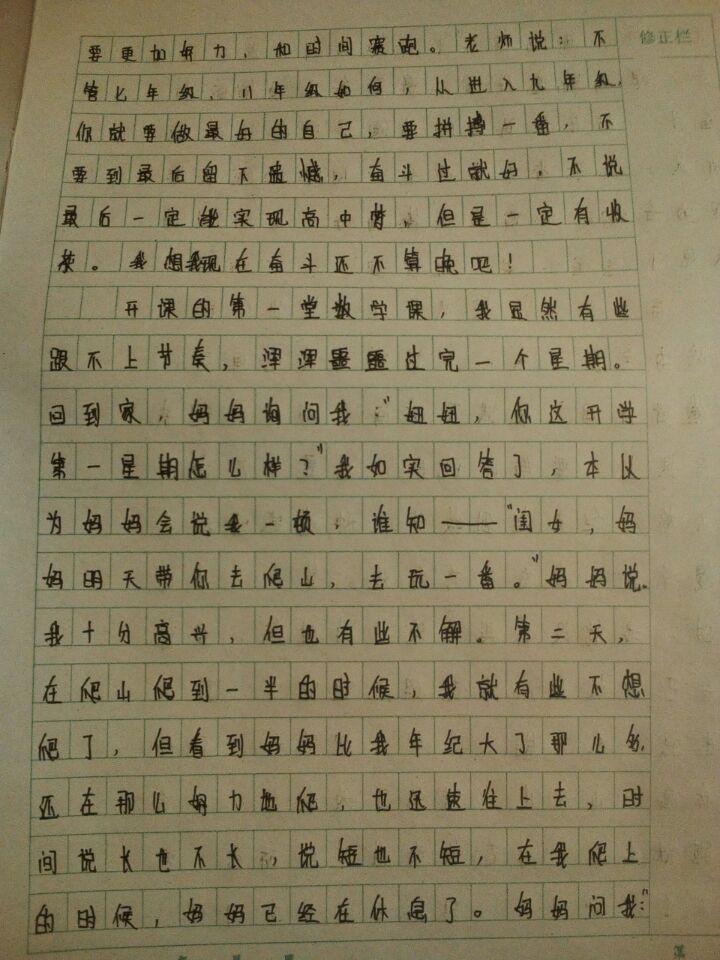 修正栏
要更加努力，和时间赛跑。老师说：不
管七年级、八年级如何，从进入九年级，
你就要做最好的自己，要拼搏一番，不
要到最后留下遗憾，奋斗过就好，不说
最后一定能实现高中梦，但是一定有收
获。我想我现在奋斗还不算晚吧！
开课的第一堂数学课，我显然有些
跟不上节奏，浑浑噩噩过完一个星期。
回到家，妈妈询问我：“妞妞，你这开学
第一星期怎么样？”我如实回答了，本以
为妈妈会说我一顿，谁知——“闺女，妈
妈明天带你去爬山，去玩一番。”妈妈说。
我十分高兴，但也有些不解。第二天，
在爬山爬到一半的时候，我就有些不想
爬了，但看到妈妈比我年纪大了那么多，
还在那么努力地爬，也迅速往上去，时
间说长也不长，说短也不短，在我爬上
的时候，妈妈已经在休息了。妈妈问我：“